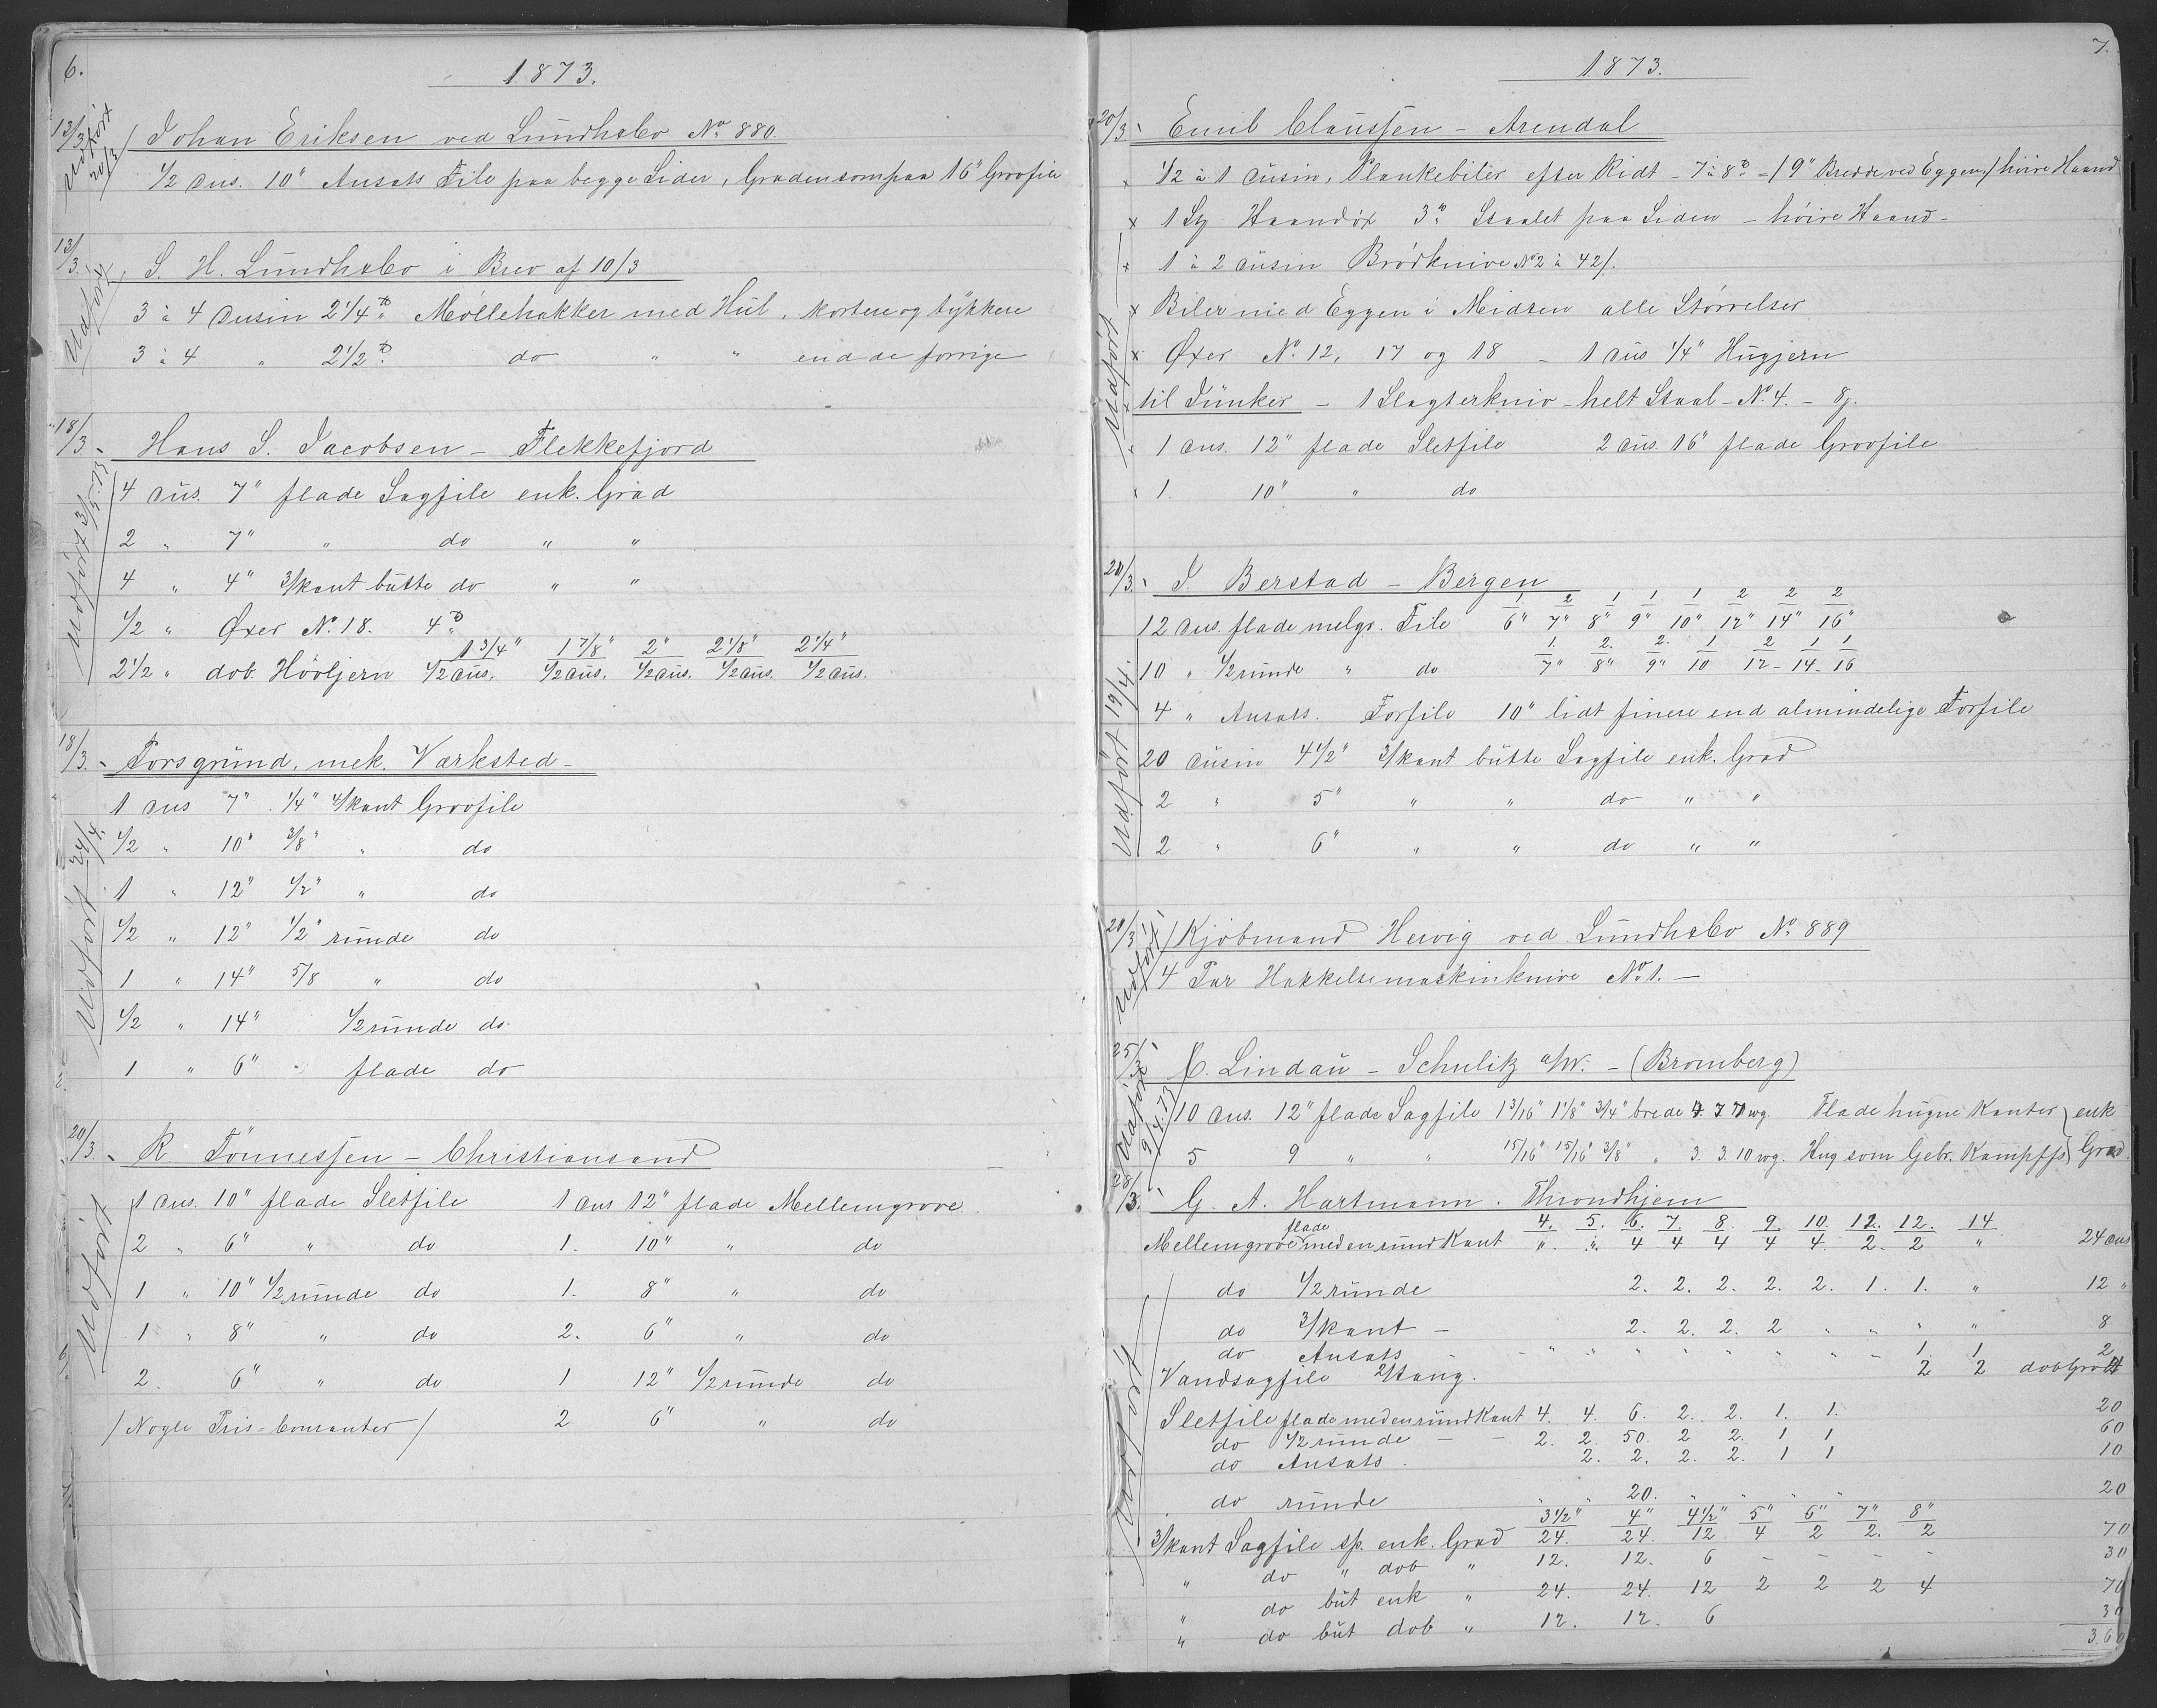 6.
1873.
13/3 Johan Eriksen ved Lundhsbo No 880.
Udført 20/3
1/2 dus. 10" Ansats File paa begge Sider, Graden som paa 16" Groofile
13/3. S. H. Lundhsbo i Brev af 10/3
Udført
3 à 4 dusin 2 1/4 ℔ Møllehakker med Hul, kortere og tykkere
3 à 4 " 2 1/2 ℔ do " " end de forrige
18/3 Hans S. Jacobsen - Flekkefjord
Udført 3/5.73
4 dus. 7" flade Sagfile enk. Grad
2 " 7" " do " "
4 " 4" 3/kant butte do " "
1/2 " Øxer No. 18. 4 ℔
1 3/4" 1 7/8" 2" 2 1/8" 2 1/4"
2 1/2 " dob. Høvljern 1/2 dus. 1/2 dus. 1/2 dus. 1/2 dus. 1/2 dus.
18/3. Porsgrund. mek. Værksted -
Udført 24/4.
1 dus 7" 1/4" 4/kant Groofile
1/2 " 10" 3/8" " do
1 " 12" 1/2" " do
1/2 " 12" 1/2" runde do
1 " 14" 5/8 " do
1/2 " 14" 1/2 runde do.
1 " 6" flade do
20/3. R. Tönnessen - Christiansand
Udført
1 dus. 10" flade Sletfile 1 dus 12" flade Mellemgrove
2 " 6" " do 1. 10" " do
1 " 10" 1/2 runde do 1. 8" " do
1 " 8" " do 2. 6" " do
2. 6" " do 1 12" 1/2 runde do
/ Nogle Pris-Couranter / 2 6" " do
7.
1873.
20/3. Emil Claussen - Arendal
x 1/2 à 1 dusin, Plankebiler efter Ridt - 7 à 8 ℔ = / 9" Bredde ved Eggen / høire Haand
x 1 St Haandøx 3 ℔ Staalet paa Siden - høire Haand -
x 1 à 2 dusin Brødknive No 2 à 42/.
Udført
x Biler med Eggen i Midten alle Størrelser
x Øxer No. 12, 17 og 18 - 1 dus 1/4" Hugjern
x til Junker - 1 Slagterkniv - helt Staal - No. 4. - 8/.
x 1 dus. 12" flade Sletfile 2 dus. 16" flade Groofile
x 1. 10" " do
20/3. J. Berstad - Bergen
Udført 19/4.
1 2 1 1 1 2 2 2
12 dus. flade melgr. File 6" 7" 8" 9" 10" 12" 14" 16"
1. 2. 2. 1 2 1 1
10 " 1/2 runde " do 7" 8" 9" 10 12 - 14 - 16
4 " Ansats. Forfile 10" lidt finere end almindelige Forfile
20 dusin 4 1/2" 3/kant butte Sagfile enk. Grad
2 " 5" " " do " "
2 " 6" " " do " "
20/3 Kjøbmand Hervig ved Lundhsbo No 889
Udført
4 Par Hakkelsemaskinknive No 1. -
25/3 C. Lindau - Schulitz a/W. - (Bromberg)
Udført 9/4.73
10 dus. 12" flade Sagfile 1 3/16" 1 1/8" 3/4" brede 7 wg. Flade hugne Kanter } enk
5 9 " " 15/16" 15/16" 3/8" " 3. 3. 10 wg. Hug som Gebr. Kampffs } Grad.
28/3. G. A. Hartmann. Throndhjem
Udført
4. 5. 6. 7. 8. 9. 10. 12. 12. 14
Mellemgrove flade med en rund Kant " " 4 4 4 4 4. 2. 2 " 24 dus
do 1/2 runde 2. 2. 2. 2. 2. 1. 1. " 12 "
do 3/kant - 2. 2. 2. 2 " " " " 8
do Ansats - - " " " " " " " 1 1 2
Vandsagfile 2/tang. 2 2 dob Grad 4
Sletfile flade med en rund Kant 4. 4. 6. 2. 2. 1. 1. 20
do 1/2 runde - - 2. 2. 50. 2 2. 1 1 60
do Ansats. 2. 2. 2. 2. 1 1 10
do runde " " 20. " " " " 20
3 1/2" 4" 4 1/2" 5" 6" 7" 8"
3/kant Sagfile sp. enk. Grad 24. 24. 12 4 2 2. 2 70
" do " dob " 12. 12. 6 - - - - 30
" do but enk " 24. 24. 12 2 2 2 4 70
" do but dob " 12. 12. 6 30
360